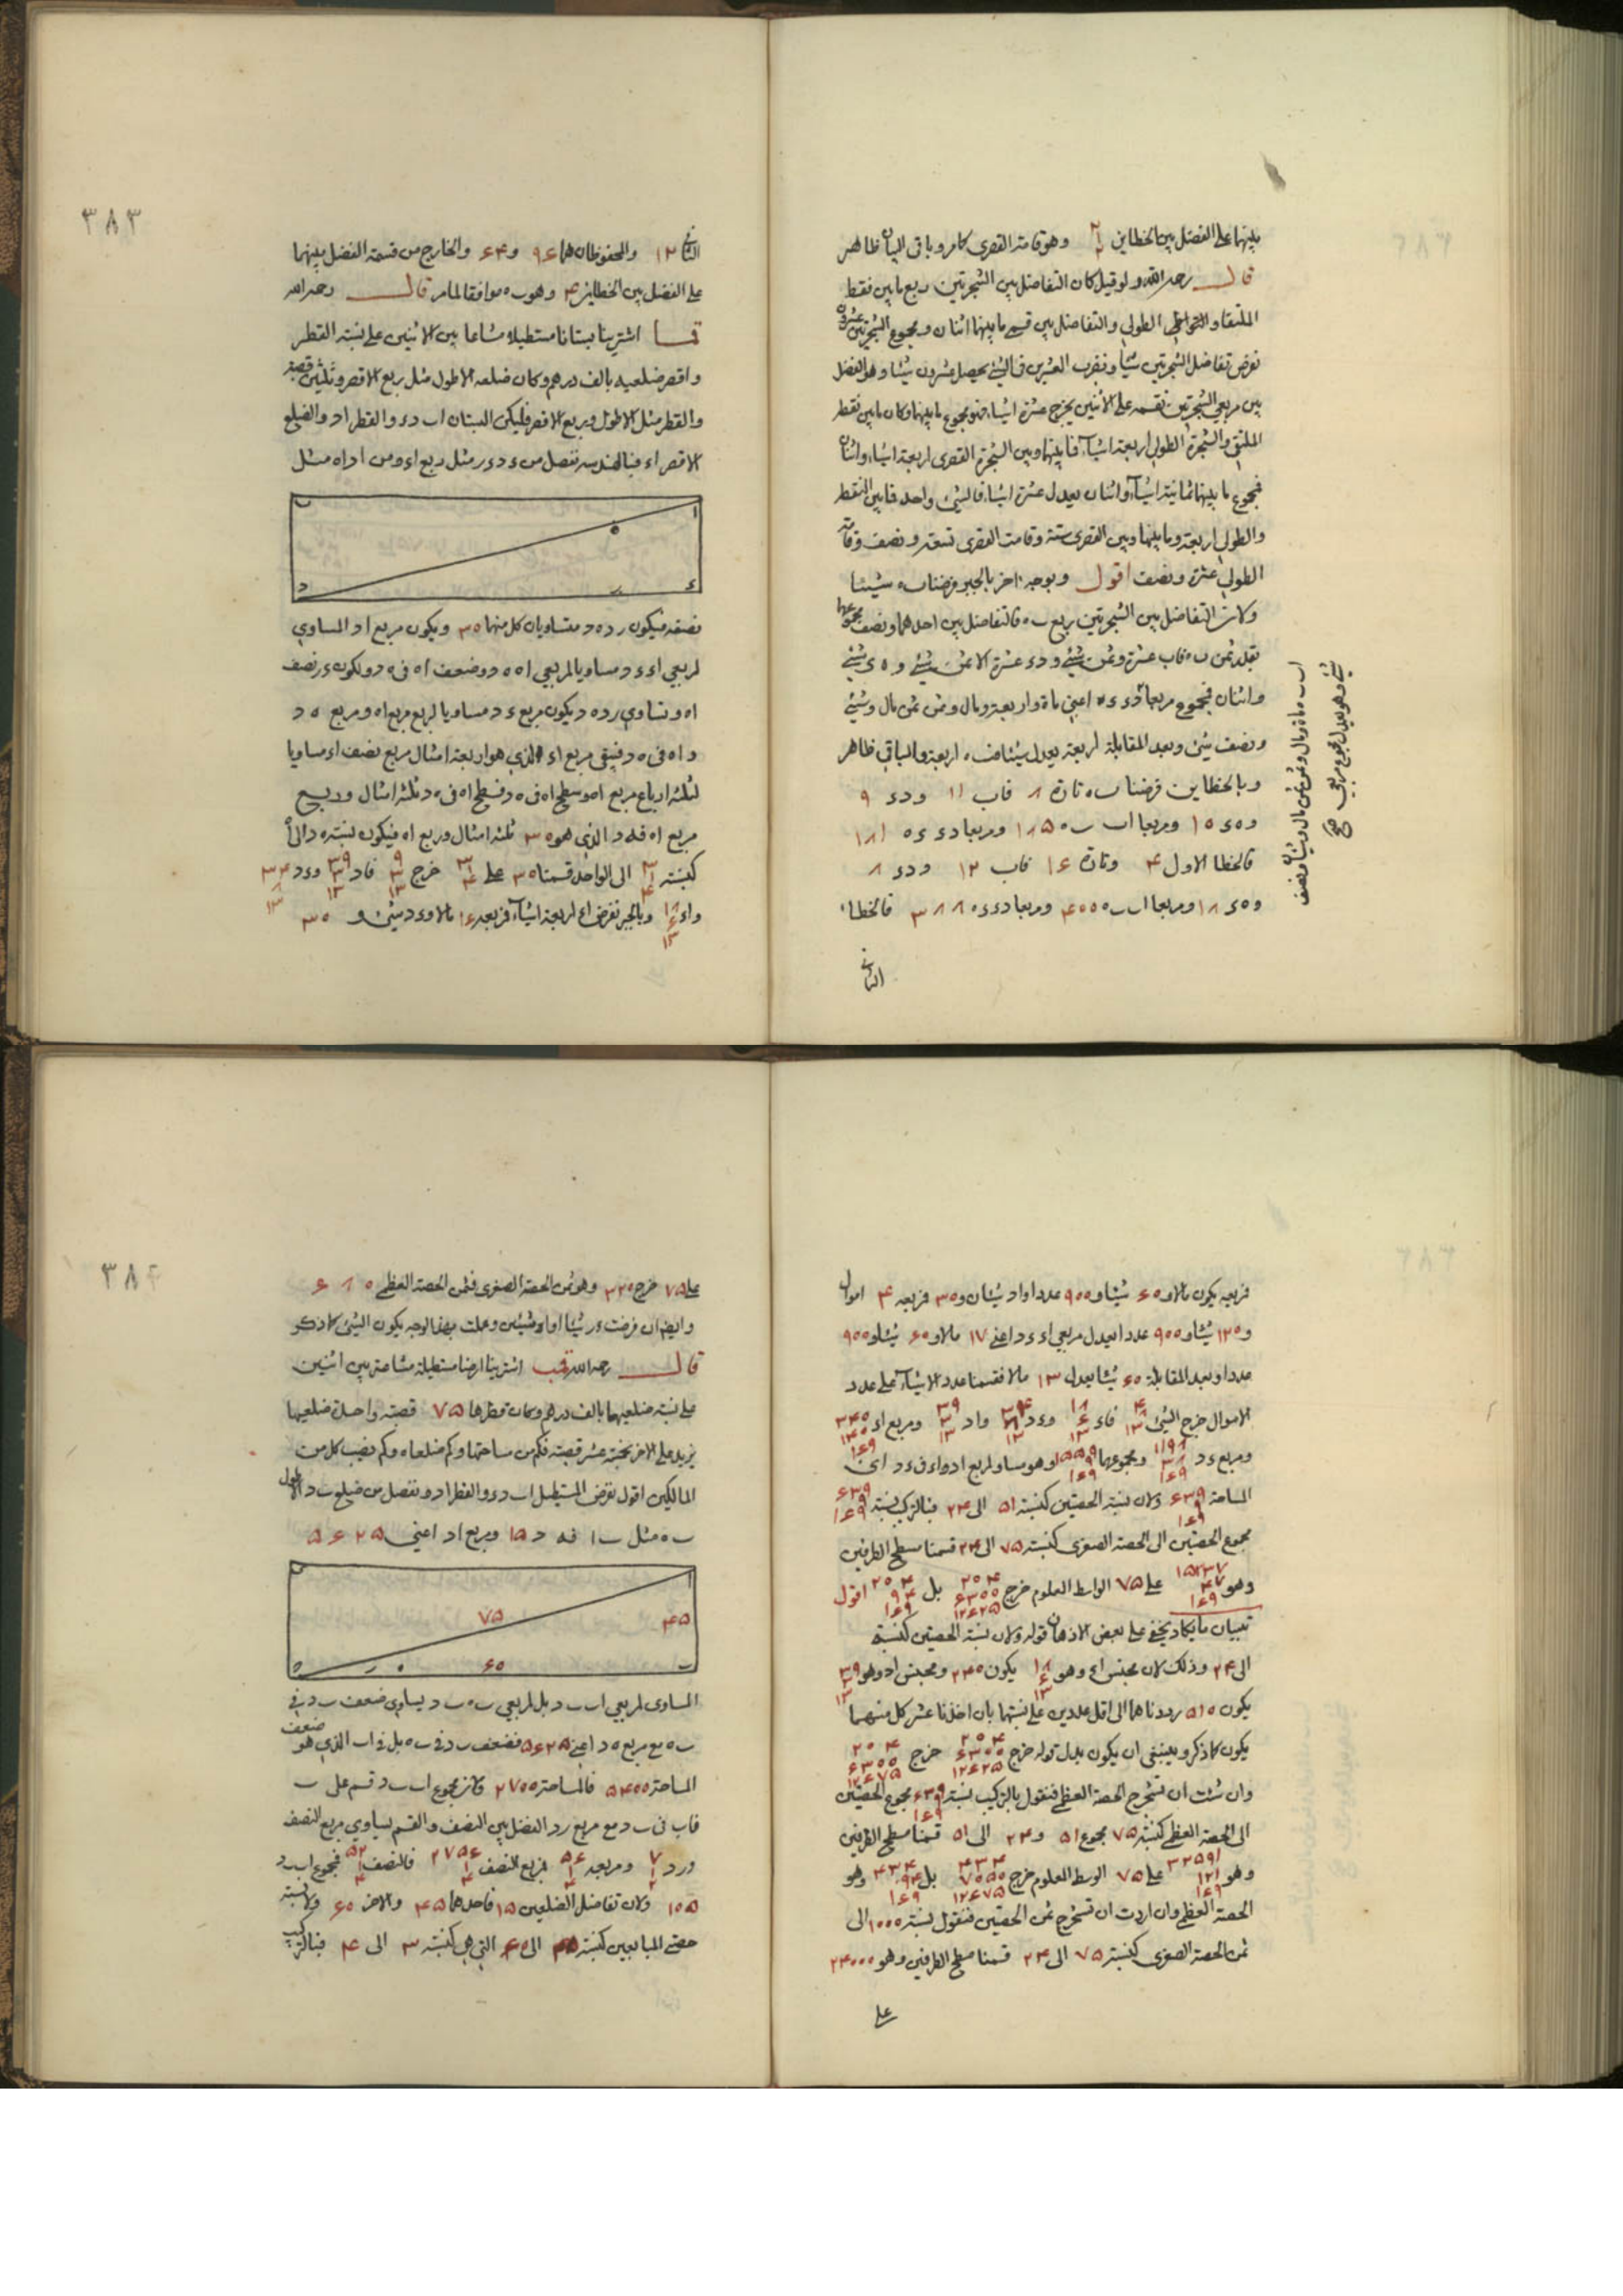 بينهما على الفضل بين الخطاين وهو قامة القصرى كما مر وباقى البيان ظاهر
قال رحمه الله ولو قيل كان التفاضل بين الشجرتين ربع ما بين نقطة
الملتقا و الطولى والتفاضل بين قسمى ما بينهما اثنان ومجموع الشجرتين عشرون
نفرض تفاضل الشجرتين شيأ ونضرب العشرين فى الشئ يحصل عشرون شيئا وهو الفضل
بين مربعي الشجرتين نقسمه على الاثنين يخرج عشرة اشياء فهو مجموع ما بينهما وكان ما بين نقطة
الملتقى والشجرة الطولى اربعة اشيآء فما بينها وبين الشجرة القصرى اربعة اشياء واثنان
فمجموع ما بينهما ثمانية اشيآء واثنان يعدل عشرة اشياء فالشئ واحد فما بين النقطة
والطولى اربعة وما بينها وبين القصرى ستة وقامت القصرى تسعة ونصف وقامة
الطولى عشرة ونصف اقول وبوجه اخر بالجبر فرضنا ب ه شيئا
ولان التفاضل بين الشجرتين ربع ب ه فالتفاضل بين احدهما ونصف مجموعها
بقدر ثمن ب ه فاب عشرة وثمن شئ و د ء عشرة الا ثمن شئ و ه ء شئ
واثنان فمجموع مربعا د ء ء ه اعنى ماة واربعة ومال وثمن ثمن مال وشئ
ونصف شئ وبعد المقابلة اربعة يعدل شيئا ف ه اربعة والباقى ظاهر
وبالخطاين فرضنا ب ه تارة ۸ فاب ۱۱ و د ء ۹
و ه ء ۱۰ ومربعا اب ب ه ۱۸۵ ومربعا د ء ء ه ۱۸۱
فالخطا الاول ۴ وتارة ۱۶ فاب ۱۲ و د ء ۸
و ه ء ۱۸ ومربعا اب ب ه ۴۰۰ ومربعا د ء ء ه ۳۸۸ فالخطا
الثانى
۳۸۳
الثانى ۱۲ والمحفوظان هما ۹۶ و ۶۴ والخارج من قسمة الفضل بينهما
على الفضل بين الخطاين ۴ وهو ب ه موافقا لما مر قال رحمه الله
اشترينا بستانا مستطيلا مشاعا بين الاثنين على نسبة القطر
واقصر ضلعيه بالف درهم وكان ضلعه الاطول مثل ربع الاقصر وثلثين قصبة
والقطر مثل الاطول وربع الاقصر فليكن البستان اب د ء والقطر اد والضلع
الاقصر اء فبالهندسه نفصل من ء د ء ر مثل ربع اء ومن اد اه مثل
نصفه فيكون ر د ه د متساويان كل منهما ۳۰ ويكون مربع اد المساوي
لمربعي اء ء د مساويا لمربعي اه ه د وضعف اه فى ه د ولكون ء ر نصف
اه وتساوي ر د ه د يكون مربع ء د مساويا لربع مربع اه ومربع ه د
و اه فى ه د فيبقى مربع اء الذي هو اربعة امثال مربع نصف اء مساويا
لثلثة ارباع مربع اه وسطح اه فى ه د فسطح اه فى ه د ثلثة امثال وربع
مربع اه فه د الذي هو ۳۰ ثلثة امثال وربع اه فيكون نسبة ه د الى اه
كنسبة الى الواحد قسمنا ۳۰ على خرج فاد و ء د
و اء وبالجبر نفرض اء اربعة اشيآء فربعه ۱۶ مالا و ء د شئ و ۳۰
فربعه يكون مالا و ۶۰ شيئا و ۹۰۰ عددا واد شيئان و ۳۰ فربعه ۴ اموال
و ۱۲۰ شيئا و ۹۰۰ عددا يعدل مربعي اء ء د اعنى ۱۷ مالا و ۶۰ شيئا و ۹۰۰
عددا وبعد المقابلة ۶۰ شيئا يعدل ۱۳ مالا فقسمنا عدد الاشيآء على عدد
الاموال خرج الشئ فاء و ء د واد ومربع اء
ومربع ء د ومجموعهما وهو مساو لمربع اد واء فى ء د اى
المساحة ولان نسبة الحصتين كنسبة ۵۱ الى ۲۴ فبالتركيب نسبة
مجموع الحصتين الى الحصة الصغرى كنسبة ۷۵ الى ۲۴ قسمنا مسطح الطرفين
وهو على ۷۵ الواسط المعلوم خرج بل اقول
تبيان ما يكاد يخفى على بعض الاذهان قوله ولان نسبة الحصتين كنسبة
الى ۲۴ وذلك لان مجنس اء وهو يكون ۲۴۰ ومجنس اد وهو
يكون ۵۱۰ رددناهما الى اقل عددين على نسبتهما بان اخذنا عشر كل منهما
يكون كما ذكر وينبغى ان يكون بدل قوله خرج خرج
وان شئت ان تستخرج الحصة العظمى فنقول بالتركيب نسبة مجموع الحصتين
الى الحصة العظمى كنسبة ۷۵ مجموع ۵۱ و ۲۴ الى ۵۱ قسمنا مسطح الطرفين
وهو على ۷۵ الوسط المعلوم خرج بل وهو
الحصة العظمى وان اردت ان تستخرج ثمن الحصتين فنقول نسبة ۱۰۰۰ الى
ثمن الحصة الصغرى كنسبة ۷۵ الى ۲۴ قسمنا مسطح الطرفين وهو ۲۴۰۰۰
على
۳۸۴
على ۷۵ خرج ۳۲۰ وهو ثمن الحصة الصغرى فثمن الحصة العظمى ۶۸۰
وايضا ان فرضت ء ر شيئا او اه شيئين وعملت بهذا الوجه يكون الشئ كما ذكر
قال رحمه الله اشترينا ارضا مستطيلة مشاعة بين اثنين
على نسبة ضلعيهما بالف درهم وكان قطرها ۷۵ قصبة واحد ضلعيها
يزيد على الاخر بخمسة عشر قصبة فكم من مساحتها وكم ضلعاه وكم نصيب كل من
المالكين اقول نفرض المستطيل اب د ء والقطر اد ونفصل من ضلع ب د الاطول
ب ه مثل ب ا فه د ۱۵ ومربع اد اعنى ۵۶۲۵
۷۵
۴۵
۶۰
المساوى لمربعي اب ب د بل لمربعي ب ه ب د يساوي ضعف ب د فى
ب ه مع مربع ه د اعنى فضعف ب د فى ب ه بل فى اب الذي هو ضعف
المساحة ۵۴۰۰ فالمساحة ۲۷۰۰ وكان مجموع اب ب د قسم على ب
فاب فى ب د مع مربع ر د الفضل بين النصف والقسم يساوي مربع النصف
و ر د ومربعه فمربع النصف فالنصف فمجموع اب ب د
۱۰۵ ولان تفاضل الضلعين ۱۵ فاحدهما ۴۵ والاخر ۶۰ ولان نسبة
حصتى المبايعين كنسبة ۴۵ الى ۶۰ التى هى كنسبة ۳ الى ۴ فبالتركيب